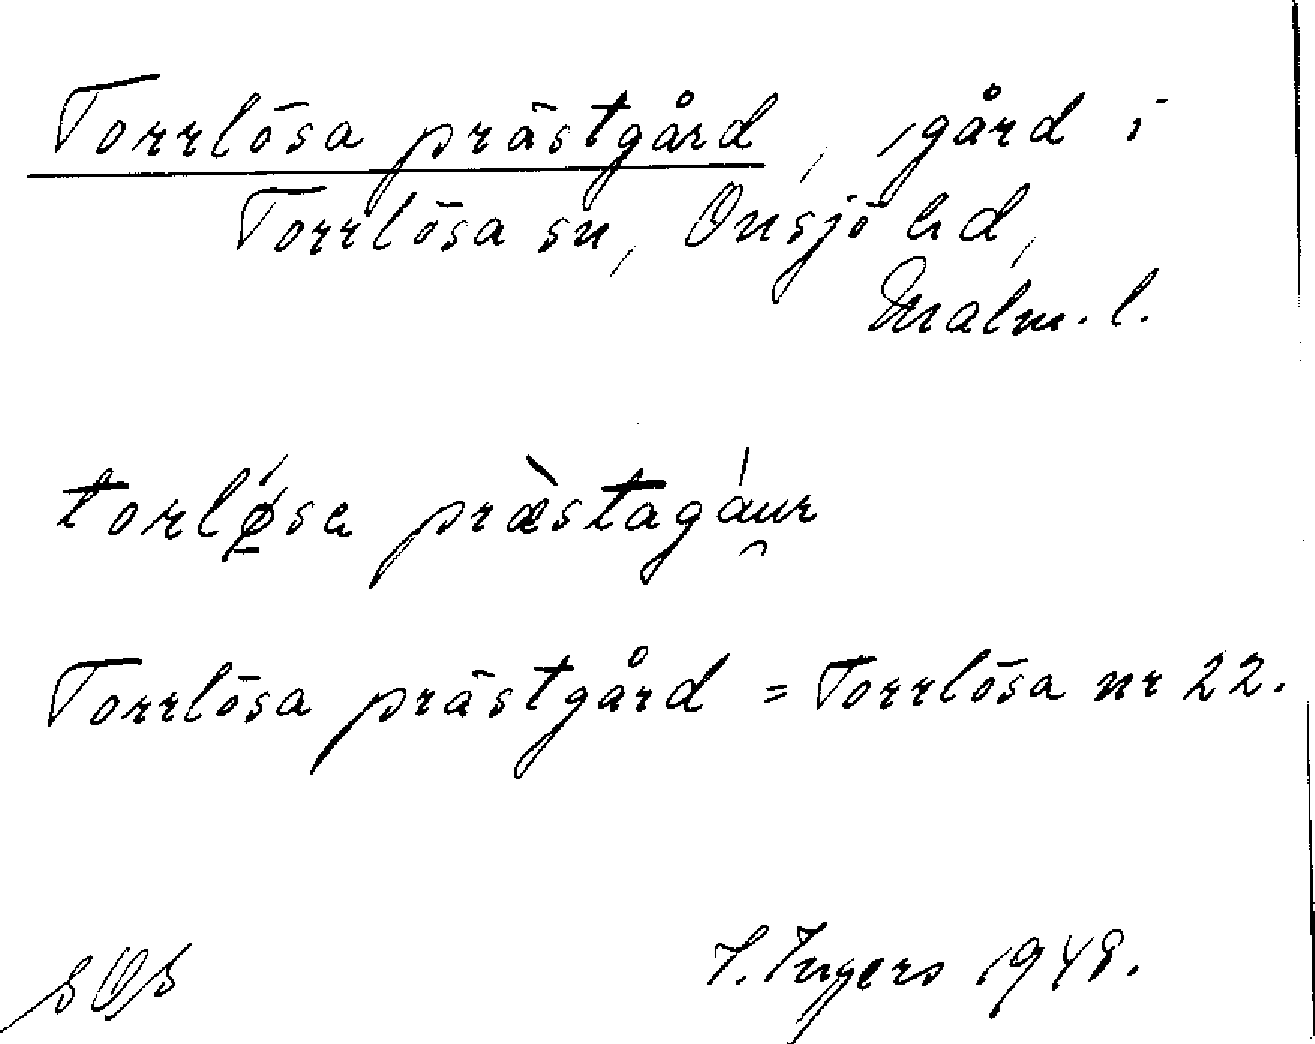 Torrlösa prästgård, gård i
Torrlösa sn, Onsjö hd,
Malm. l.
torlǿ̱sa præ̀stagáu̯r
Torrlösa prästgård = Torrlösa nr 22.
SOS I. Ingers 1948.